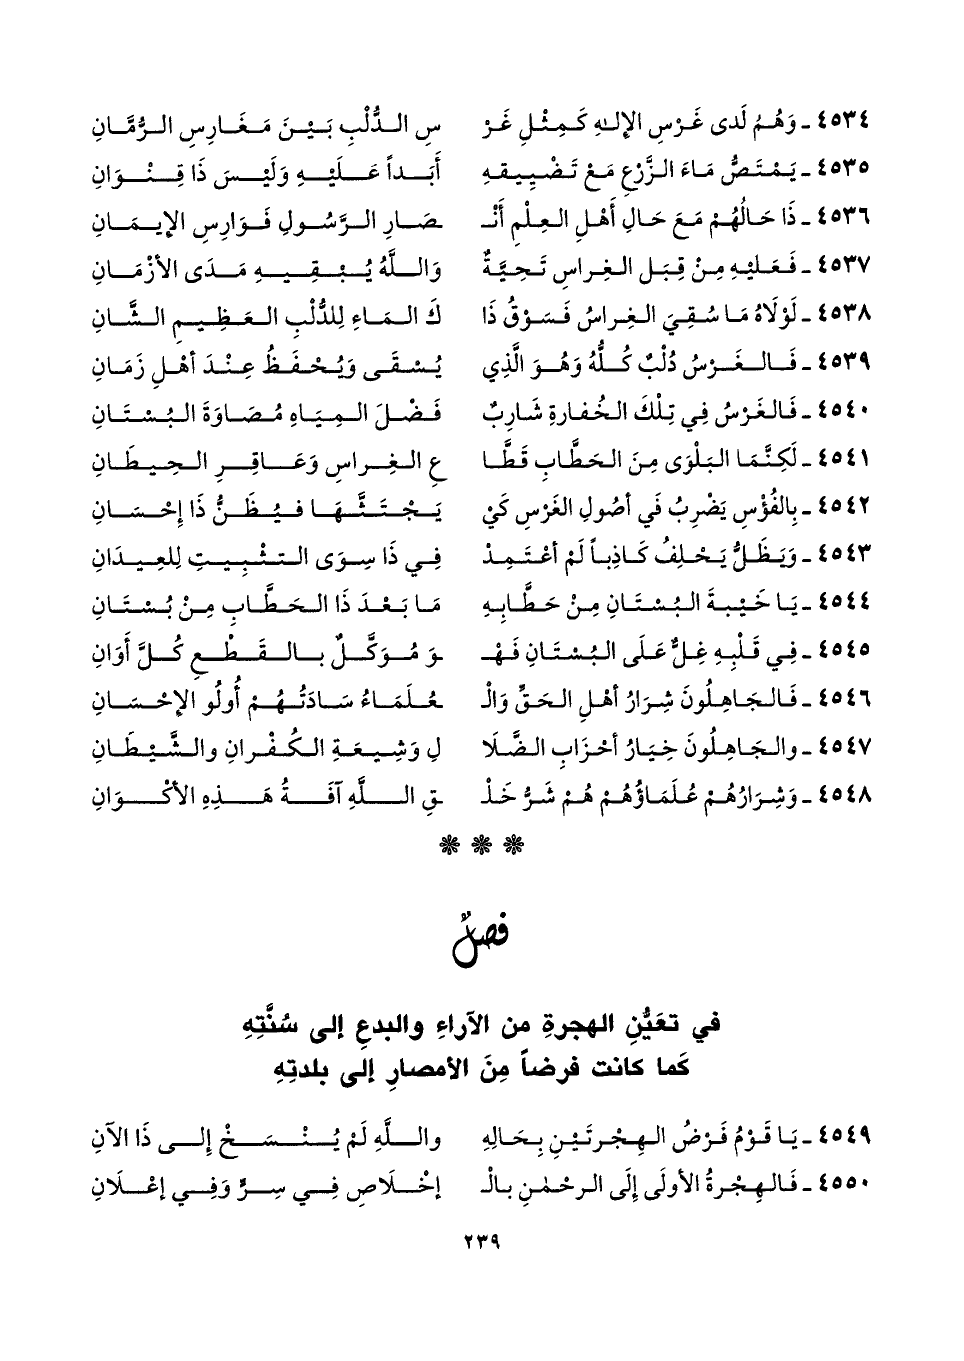 ٤٥٣٤ ـ وَهُمُ لَدى غَرْسِ الإلهِ كَمِثْلِ غَرْ سِ الدُّلْبِ بَيْنَ مَغَارِسِ الرُّمَّانِ
٤٥٣٥ ـ يَمْتَصُّ مَاءَ الزَّرْعِ مَعْ تَضْيِيقِهِ أَبَداً عَلَيْهِ وَلَيْسَ ذَا قِنْوَانِ
٤٥٣٦ ـ ذَا حَالُهُمْ مَعَ حَالِ أهْلِ العِلْمِ أنْـ ـصَارِ الرَّسُولِ فَوَارِسِ الإيمَانِ
٤٥٣٧ ـ فَعَلَيْهِ مِنْ قِبَلِ الغِراسِ تَحِيَّةٌ وَاللَّهُ يُبْقِيهِ مَدَى الأزْمَانِ
٤٥٣٨ ـ لَوْلَاهُ مَا سُقِيَ الغِراسُ فَسَوْقُ ذَا كَ المَاءِ لِلدُّلْبِ العَظِيمِ الشَّانِ
٤٥٣٩ ـ فَالغَرْسُ دُلْبٌ كُلُّهُ وَهُوَ الَّذِي يُسْقَى وَيُحْفَظُ عِنْدَ أهْلِ زَمَانِ
٤٥٤٠ ـ فَالغَرْسُ فِي تِلْكَ الخُفَارةِ شَارِبٌ فَضْلَ المِيَاهِ مُصَاوَةَ البُسْتَانِ
٤٥٤١ ـ لَكِنَّمَا البَلْوَى مِنَ الحَطَّابِ قَطَّا عِ الغِراسِ وَعَاقِرِ الحِيطَانِ
٤٥٤٢ ـ بِالفُؤْسِ يَضْرِبُ في أصُولِ الغَرْسِ كَيْ يَجْتَثَّهَا فَيُظَنُّ ذَا إحْسَانِ
٤٥٤٣ ـ وَيَظَلُّ يَحْلِفُ كَاذِباً لَمْ أعْتَمِدْ فِي ذَا سِوَى التثْبِيتِ لِلعِيدَانِ
٤٥٤٤ ـ يَا خَيْبَةَ البُسْتَانِ مِنْ حَطَّابِهِ مَا بَعْدَ ذَا الحَطَّابِ مِنْ بُسْتَانِ
٤٥٤٥ ـ فِي قَلْبِهِ غِلٌّ عَلَى البُسْتَانِ فَهْـ ـوَ مُوَكَّلٌ بِالقَطْعِ كُلَّ أوَانِ
٤٥٤٦ ـ فَالجَاهِلُونَ شِرَارُ أهْلِ الحَقِّ وَالْـ ـعُلَمَاءُ سَادَتُهُمْ أُولُو الإحْسَانِ
٤٥٤٧ ـ والجَاهِلُونَ خِيَارُ أحْزَابِ الضَّلَا لِ وَشِيعَةِ الكُفْرانِ والشَّيْطَانِ
٤٥٤٨ ـ وَشِرَارُهُمْ عُلَمَاؤُهُمْ هُمْ شَرُّ خَلْـ ـقِ اللَّهِ آفَةُ هَذِهِ الأكْوَانِ
❋ ❋ ❋
فصلٌ
في تعَيُّنِ الهجرةِ من الآراءِ والبدعِ إلى سُنَّتِهِ
كَما كانت فرضاً مِنَ الأمصارِ إلى بلدتِهِ
٤٥٤٩ ـ يَا قَوْمُ فَرْضُ الهِجْرتَيْنِ بِحَالِهِ واللَّهِ لَمْ يُنْسَخْ إلى ذَا الآنِ
٤٥٥٠ ـ فَالهِجْرةُ الأولَى إلَى الرحْمٰنِ بالْـ إخْلَاصِ فِي سِرٍّ وَفِي إعْلَانِ
٢٣٩